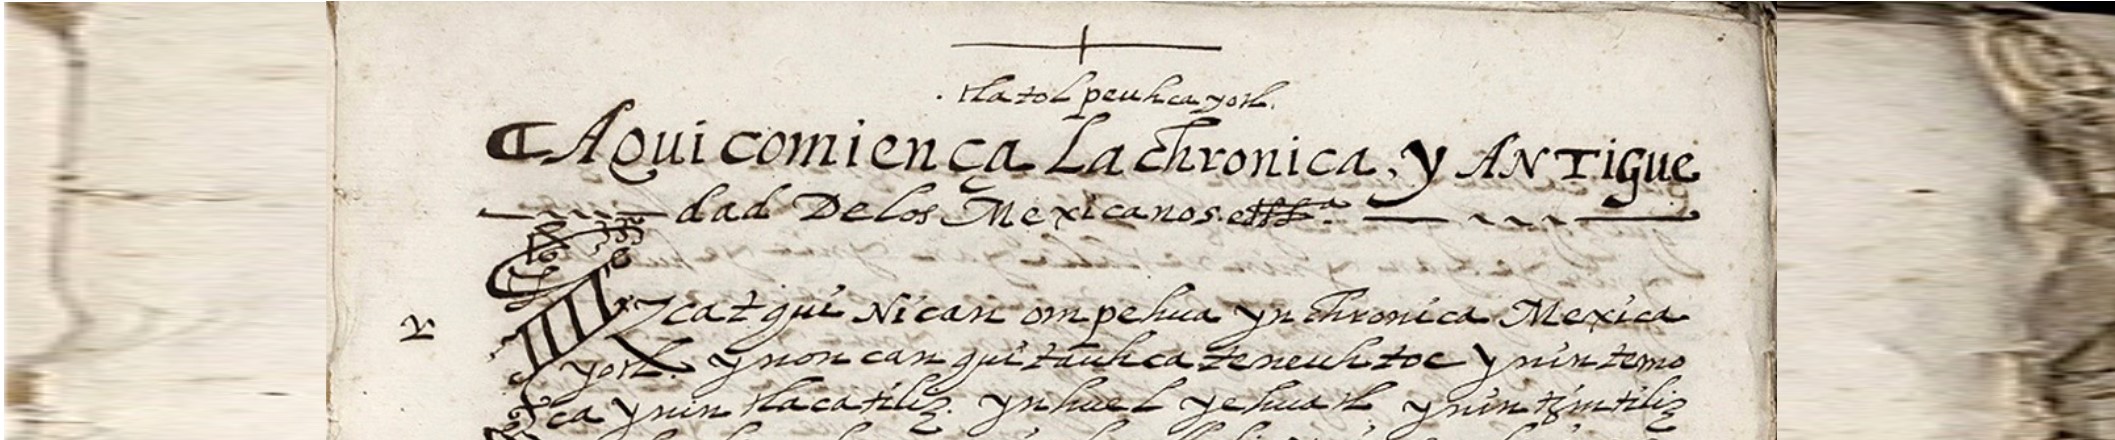 . tlatol peuhcayotl.
¶ Aqui comiença La chronica, y ANTigue
dad De los Mexicanos.
Y
Yzcatqui Nican ompehua yn chronica Mexica
yotl. ynoncan quitauhcateneuhtoc ynintemo
ca ynin tlacatiliz. ynhuel yehuatl, ynin tzintiliz